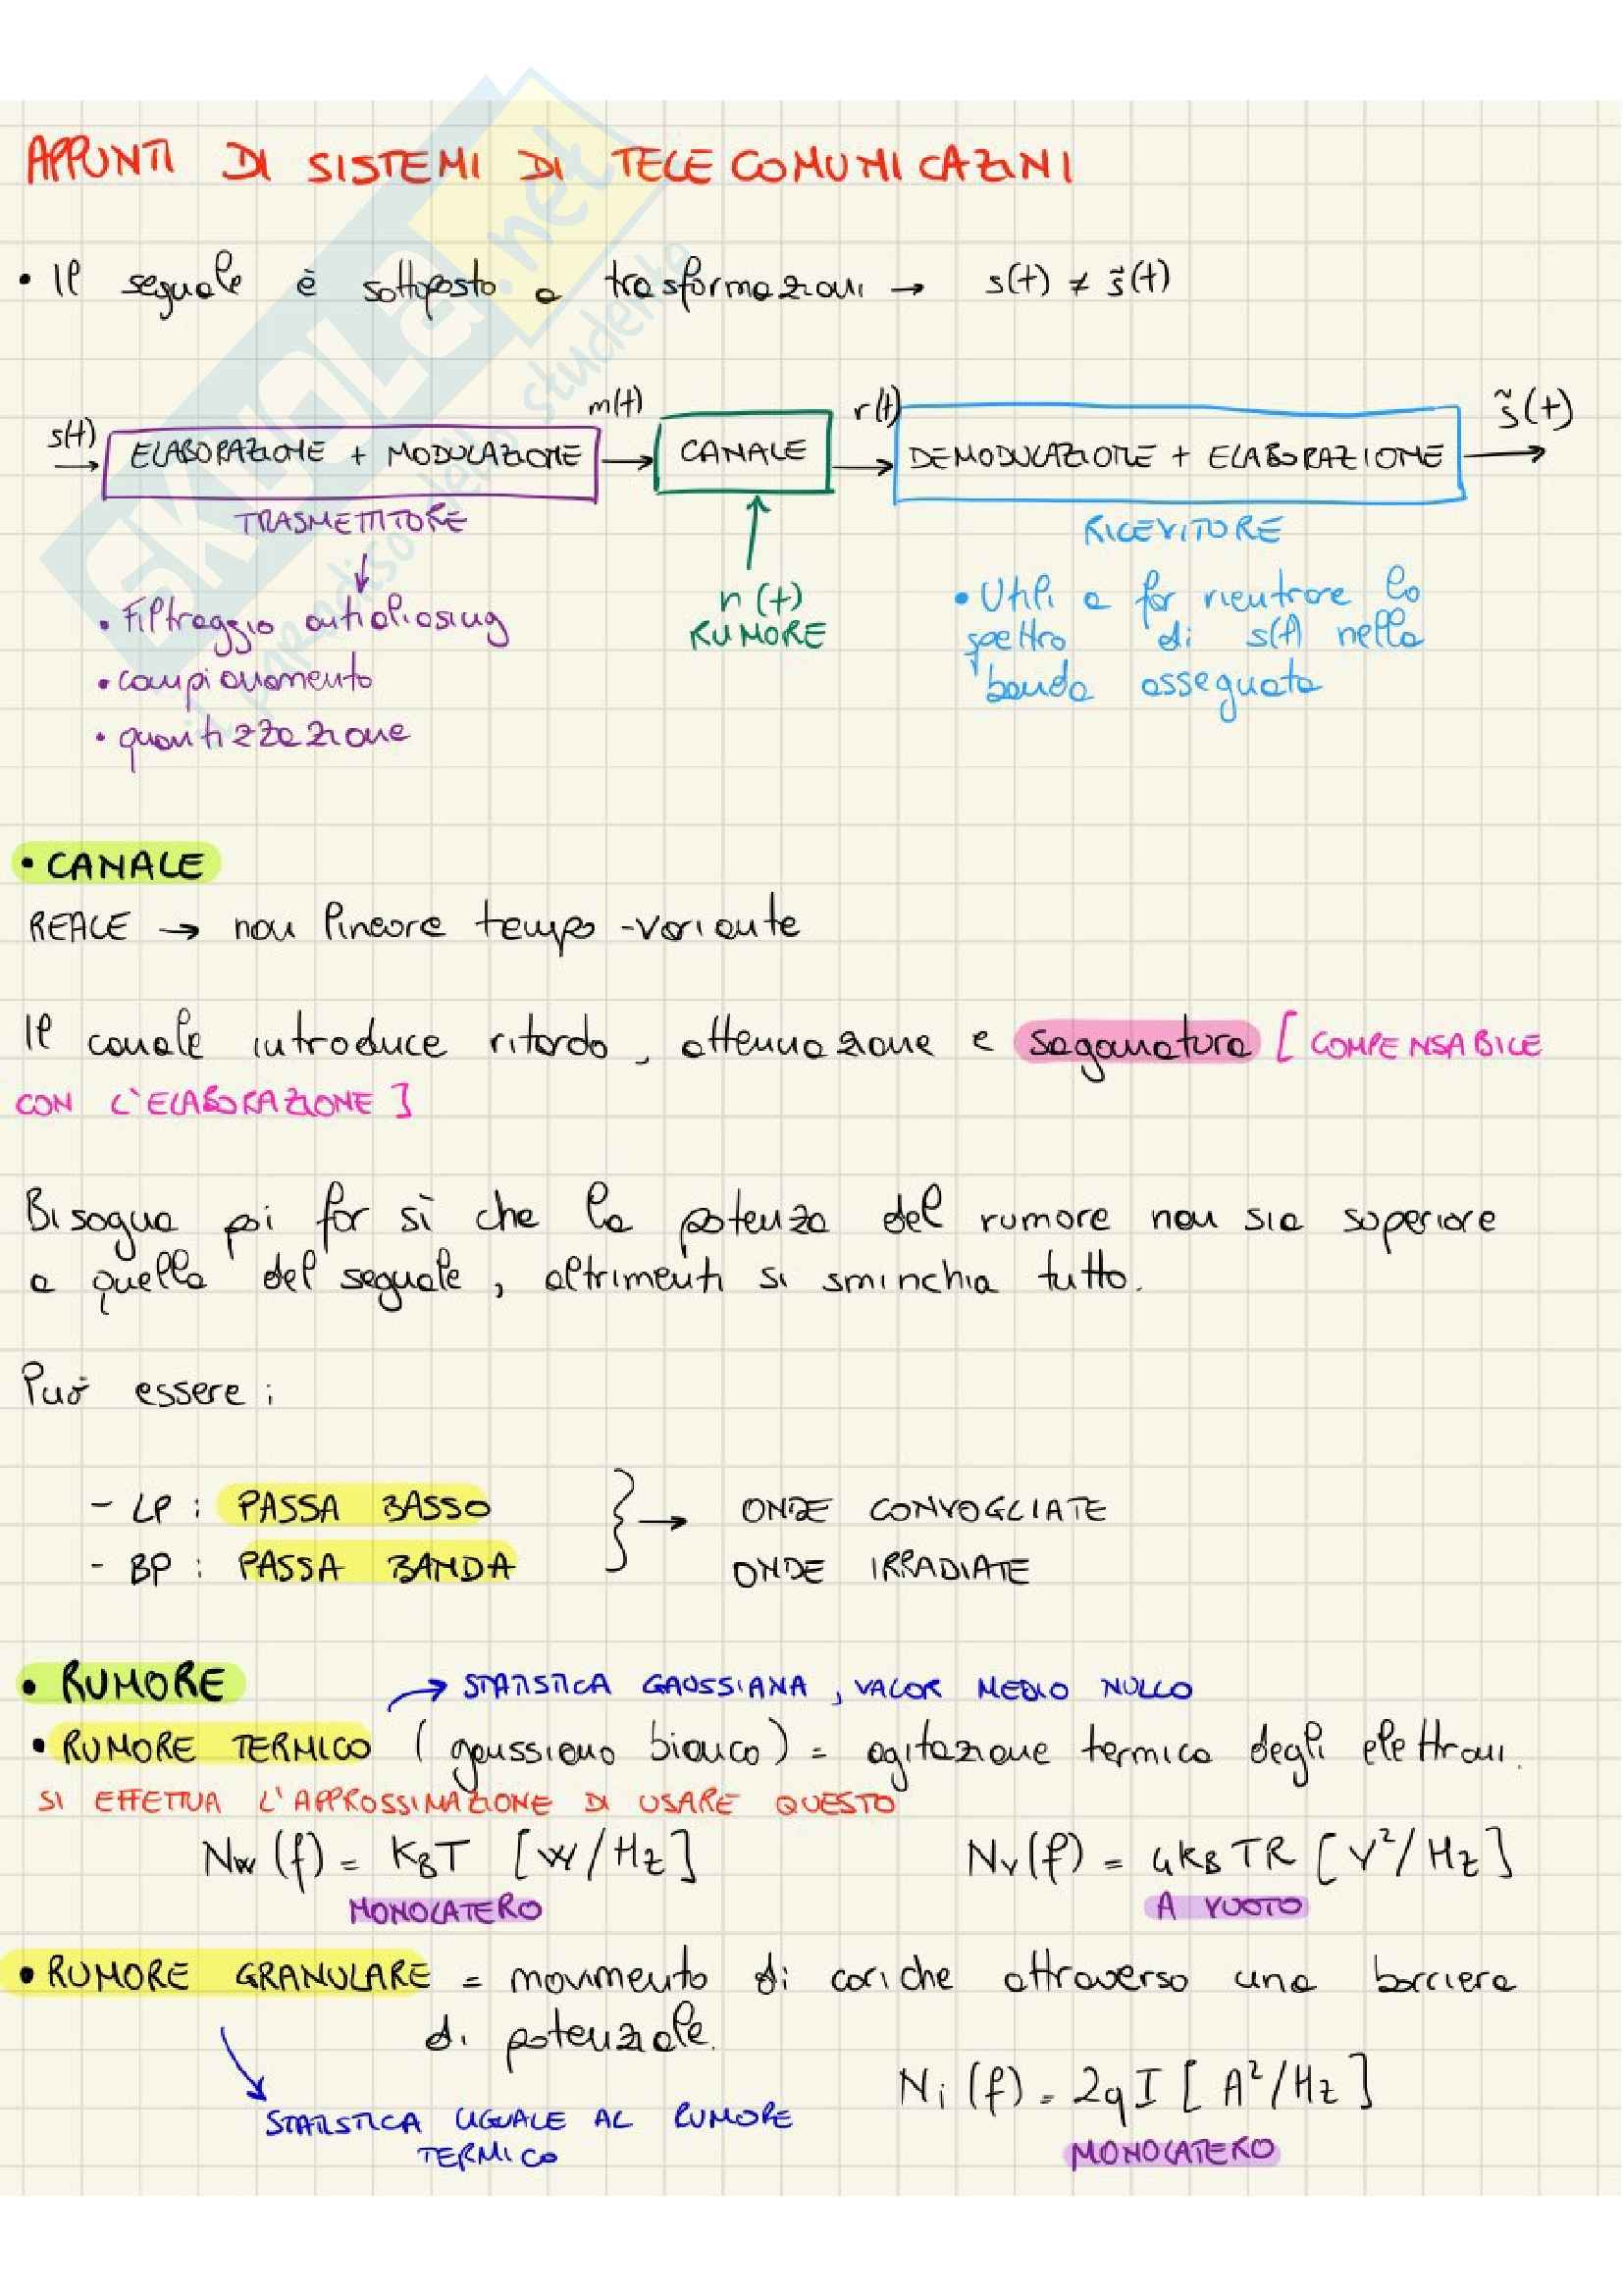 APPUNTI DI SISTEMI DI TELECOMUNICAZINI
• Il segnale è sottoposto a trasformazioni → s(t) ≠ s̃(t)
s(t) m(t) r(t) s̃(t)
ELABORAZIONE + MODULAZIONE → CANALE → DEMODULAZIONE + ELABORAZIONE
TRASMETTITORE
RICEVITORE
n(t)
RUMORE
• Filtraggio antialiasing
• campionamento
• quantizzazione
• Utili a far rientrare lo
spettro di s(t) nella
banda assegnata
• CANALE
REALE → non lineare tempo-variante
Il canale introduce ritardo, attenuazione e sagomatura [ COMPENSABILE
CON L'ELABORAZIONE ]
Bisogna poi far sì che la potenza del rumore non sia superiore
a quella del segnale, altrimenti si sminchia tutto.
Può essere:
- LP : PASSA BASSO } → ONDE CONVOGLIATE
- BP : PASSA BANDA ONDE IRRADIATE
• RUMORE
→ STATISTICA GAUSSIANA, VALOR MEDIO NULLO
• RUMORE TERMICO (gaussiano bianco) = agitazione termica degli elettroni.
SI EFFETTUA L'APPROSSIMAZIONE DI USARE QUESTO
Nw(f) = KBT [W/Hz] Nv(f) = 4kBTR [V²/Hz]
MONOLATERO A VUOTO
• RUMORE GRANULARE = movimento di cariche attraverso una barriera
di potenziale.
Ni(f) = 2qI [A²/Hz]
STATISTICA UGUALE AL RUMORE
TERMICO
MONOLATERO
SKUOLA.net
il paradiso dello studente